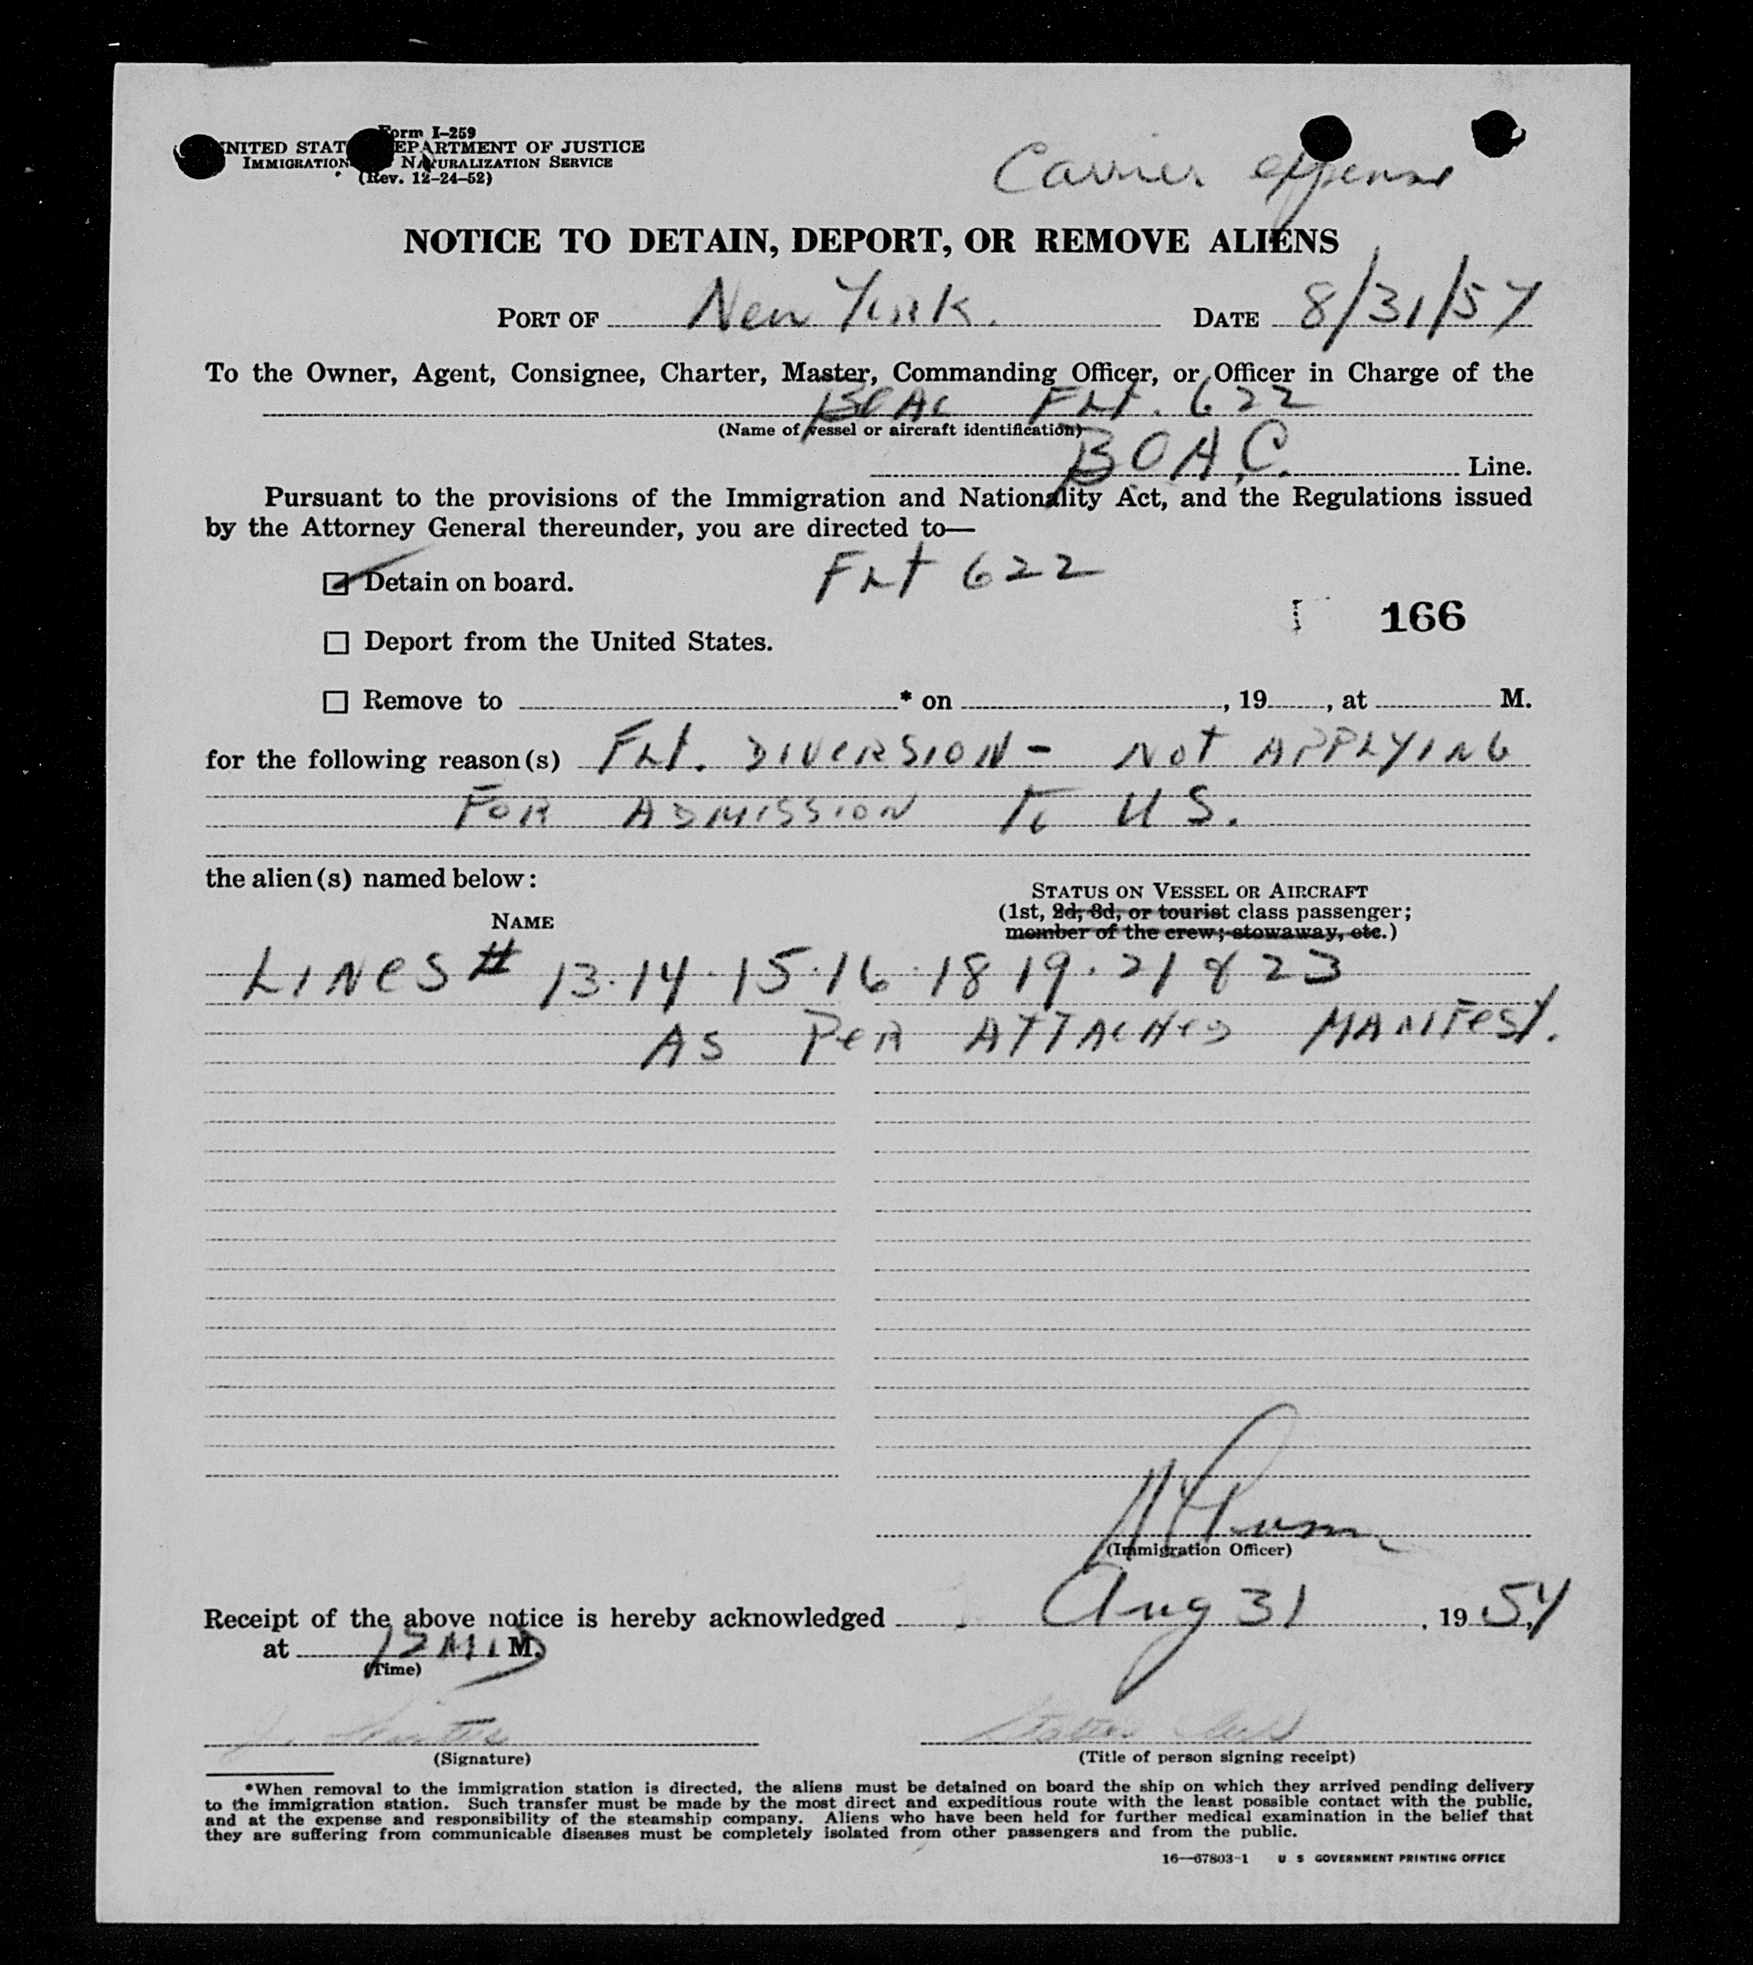 Form I-259
UNITED STATES DEPARTMENT OF JUSTICE
IMMIGRATION NATURALIZATION SERVICE
(Rev. 12-24-52)
Carrier expense
NOTICE TO DETAIN, DEPORT, OR REMOVE ALIENS
PORT OF New York. DATE 8/31/54
To the Owner, Agent, Consignee, Charter, Master, Commanding Officer, or Officer in Charge of the
BOAC FLT. 622
(Name of vessel or aircraft identification)
B.O.A.C. Line.
Pursuant to the provisions of the Immigration and Nationality Act, and the Regulations issued
by the Attorney General thereunder, you are directed to—
Detain on board. FLT 622
166
Deport from the United States.
Remove to * on , 19 , at M.
for the following reason(s) FLT. DIVERSION - NOT APPLYING
FOR ADMISSION To U S.
the alien(s) named below:
STATUS ON VESSEL OR AIRCRAFT
(1st, 2d, 3d, or tourist class passenger;
member of the crew; stowaway, etc.)
NAME
LINES # 13.14.15.16.18 19.21 & 23
AS PER ATTACHED MANIFEST.
(Immigration Officer)
Receipt of the above notice is hereby acknowledged Aug 31, 1954
at 12 MID M.
(Time)
(Signature)
(Title of person signing receipt)
*When removal to the immigration station is directed, the aliens must be detained on board the ship on which they arrived pending delivery
to the immigration station. Such transfer must be made by the most direct and expeditious route with the least possible contact with the public,
and at the expense and responsibility of the steamship company. Aliens who have been held for further medical examination in the belief that
they are suffering from communicable diseases must be completely isolated from other passengers and from the public.
16—67803-1 U S GOVERNMENT PRINTING OFFICE